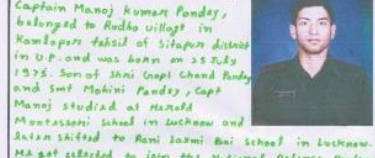 Captain Manoj Kumar Pandey,
belonged to Rudha village in
Kamlapur tehsil of Sitapur district
in U.P. and was born on 25 July
1975. Son of Shri Gopi Chand Pandey
and Smt Mohini Pandey, Capt
Manoj studied at
Montessori School in Lucknow and
later shifted to Rani Laxmi Bai School in Lucknow.
He got selected to join the National Defence